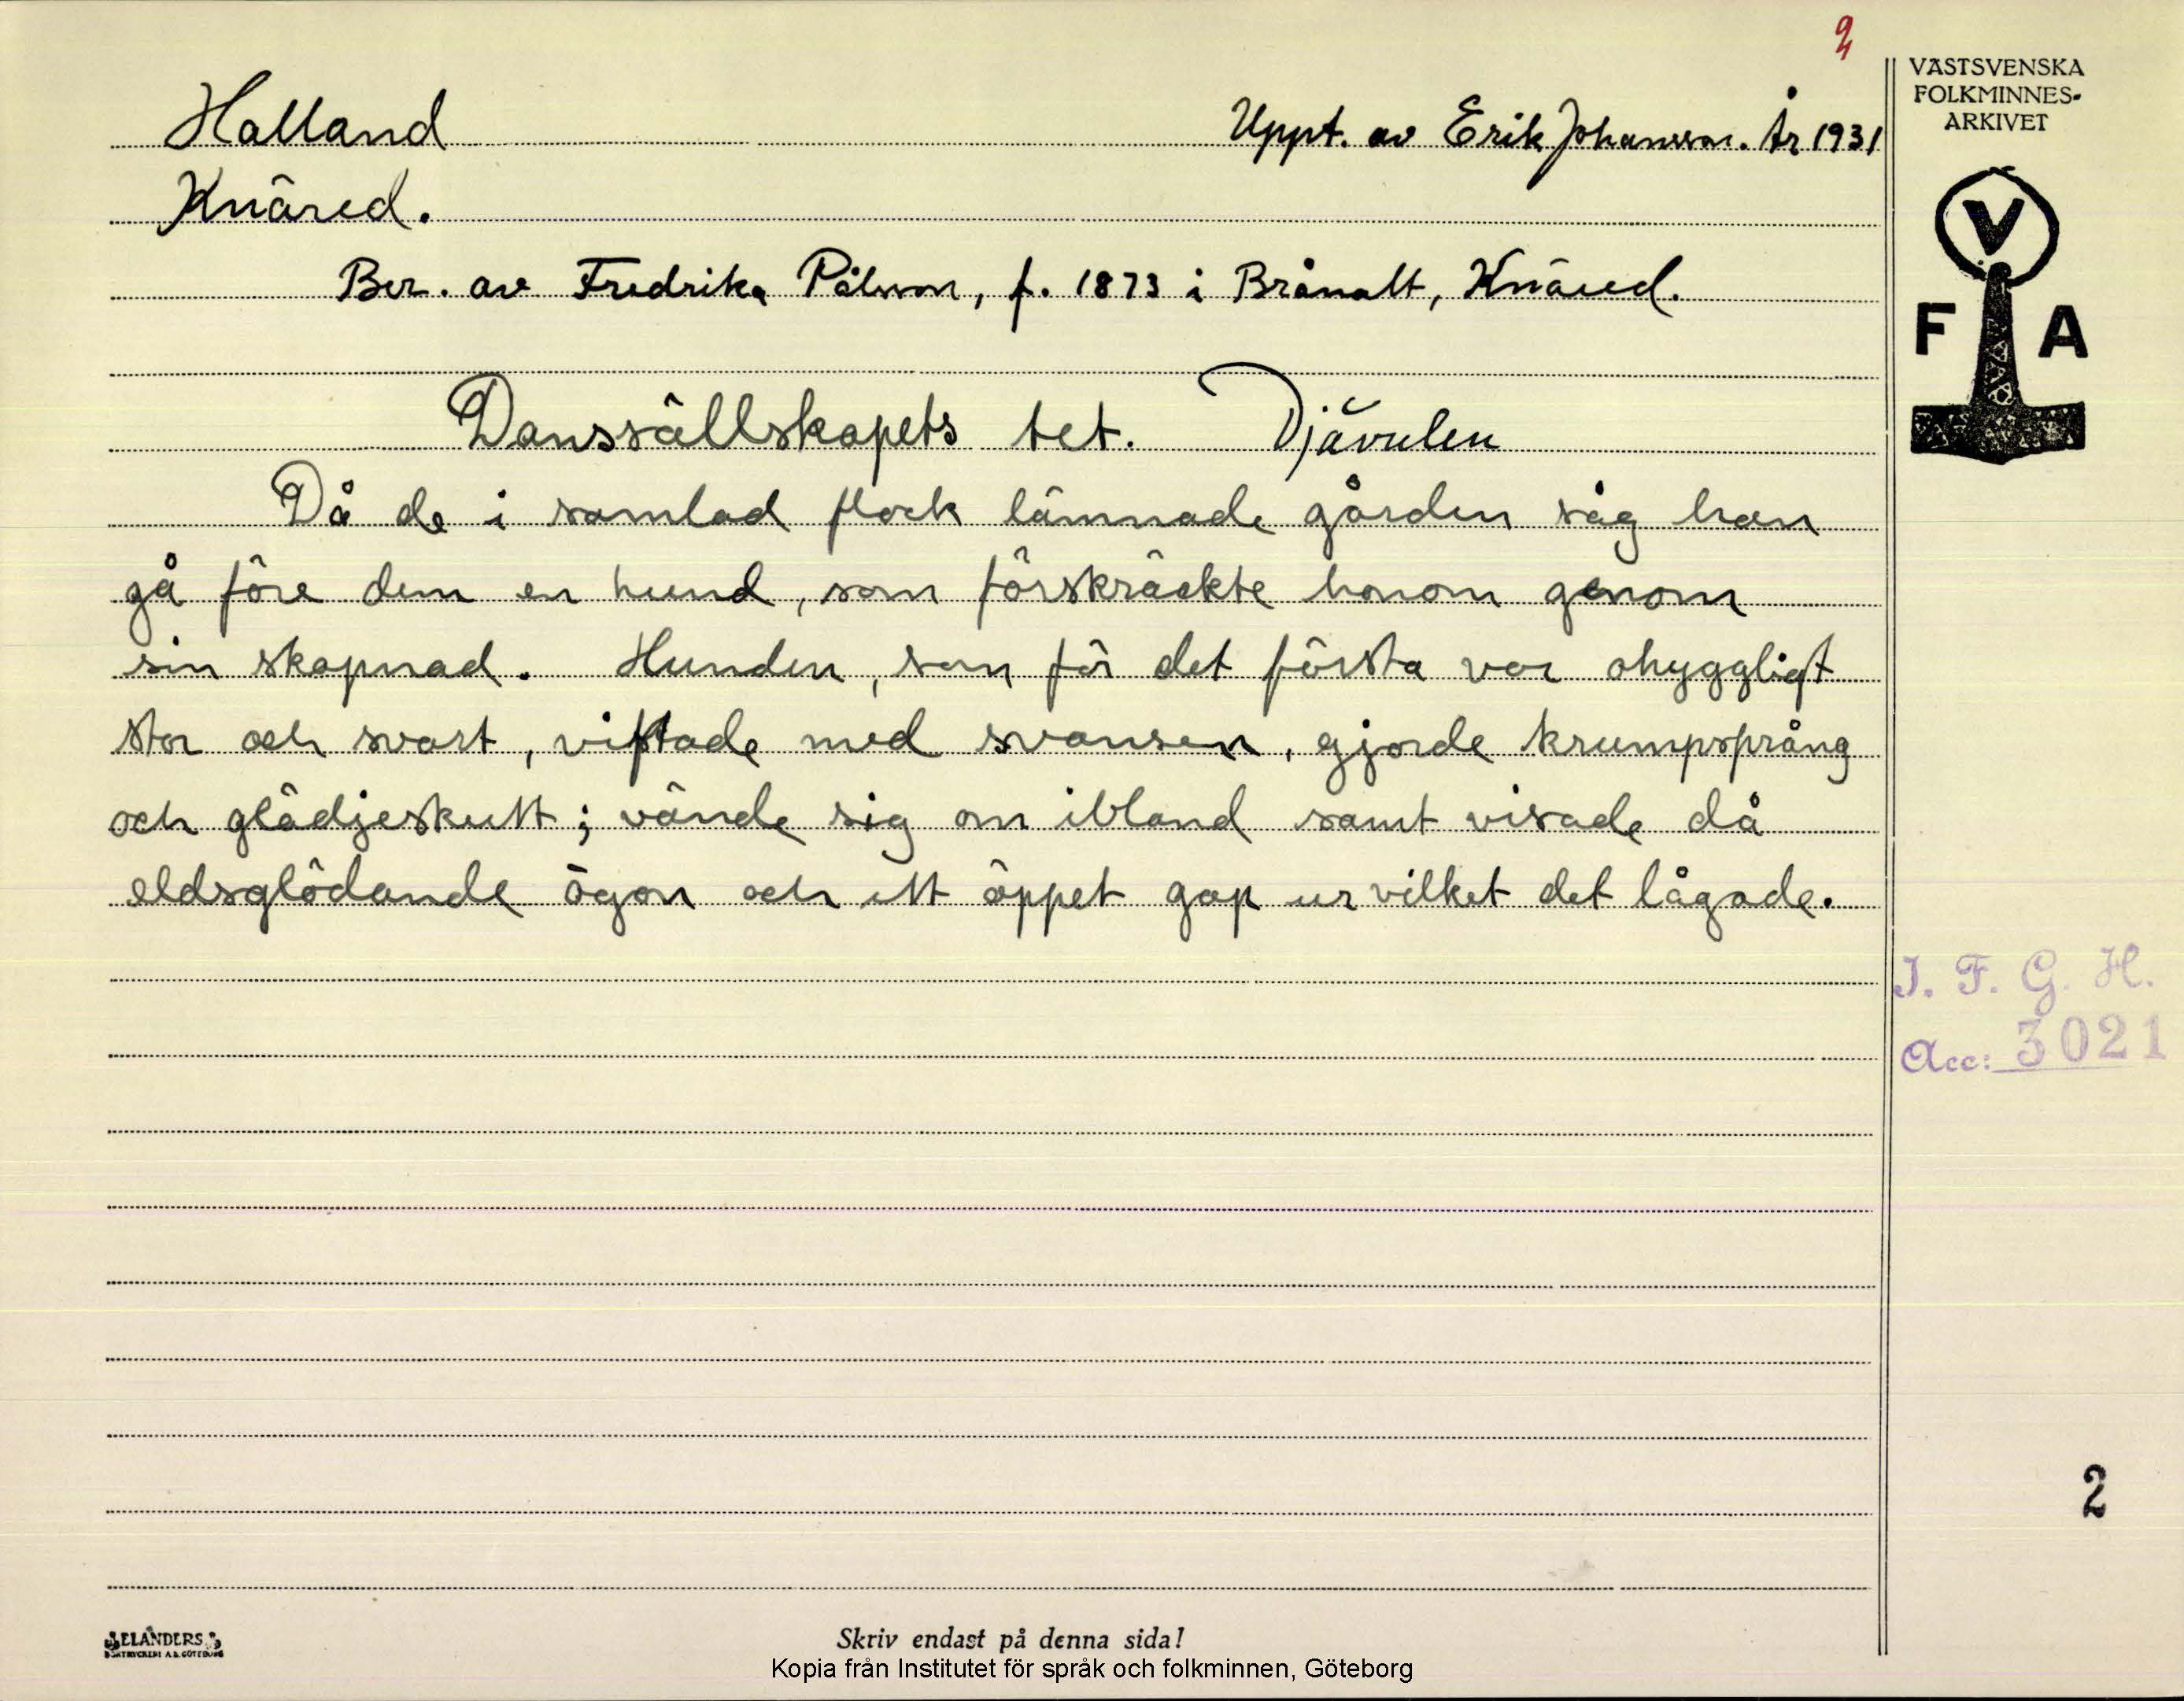 2
VÄSTSVENSKA
FOLKMINNES-
ARKIVET
Halland
Uppt. av Erik Johansson. År 1931
Knäred.
Ber. av Fredrika Pålsson, f. 1873 i Brånalt, Knäred.
V
F A
Danssällskapets tet. Djävulen
Då de i samlad flock lämnade gården såg han
gå före dem en hund, som förskräckte honom genom
sin skapnad. Hunden, som för det första var ohyggligt
stor och svart, viftade med svansen, gjorde krumpsprång
och glädjeskutt; vände sig om ibland samt visade då
eldsglödande ögon och ett öppet gap ur vilket det lågade.
I. F. G. H.
Acc: 3021
2
ELANDERS
BOKTRYCKERI A.B. GÖTEBORG
Skriv endast på denna sida!
Kopia från Institutet för språk och folkminnen, Göteborg